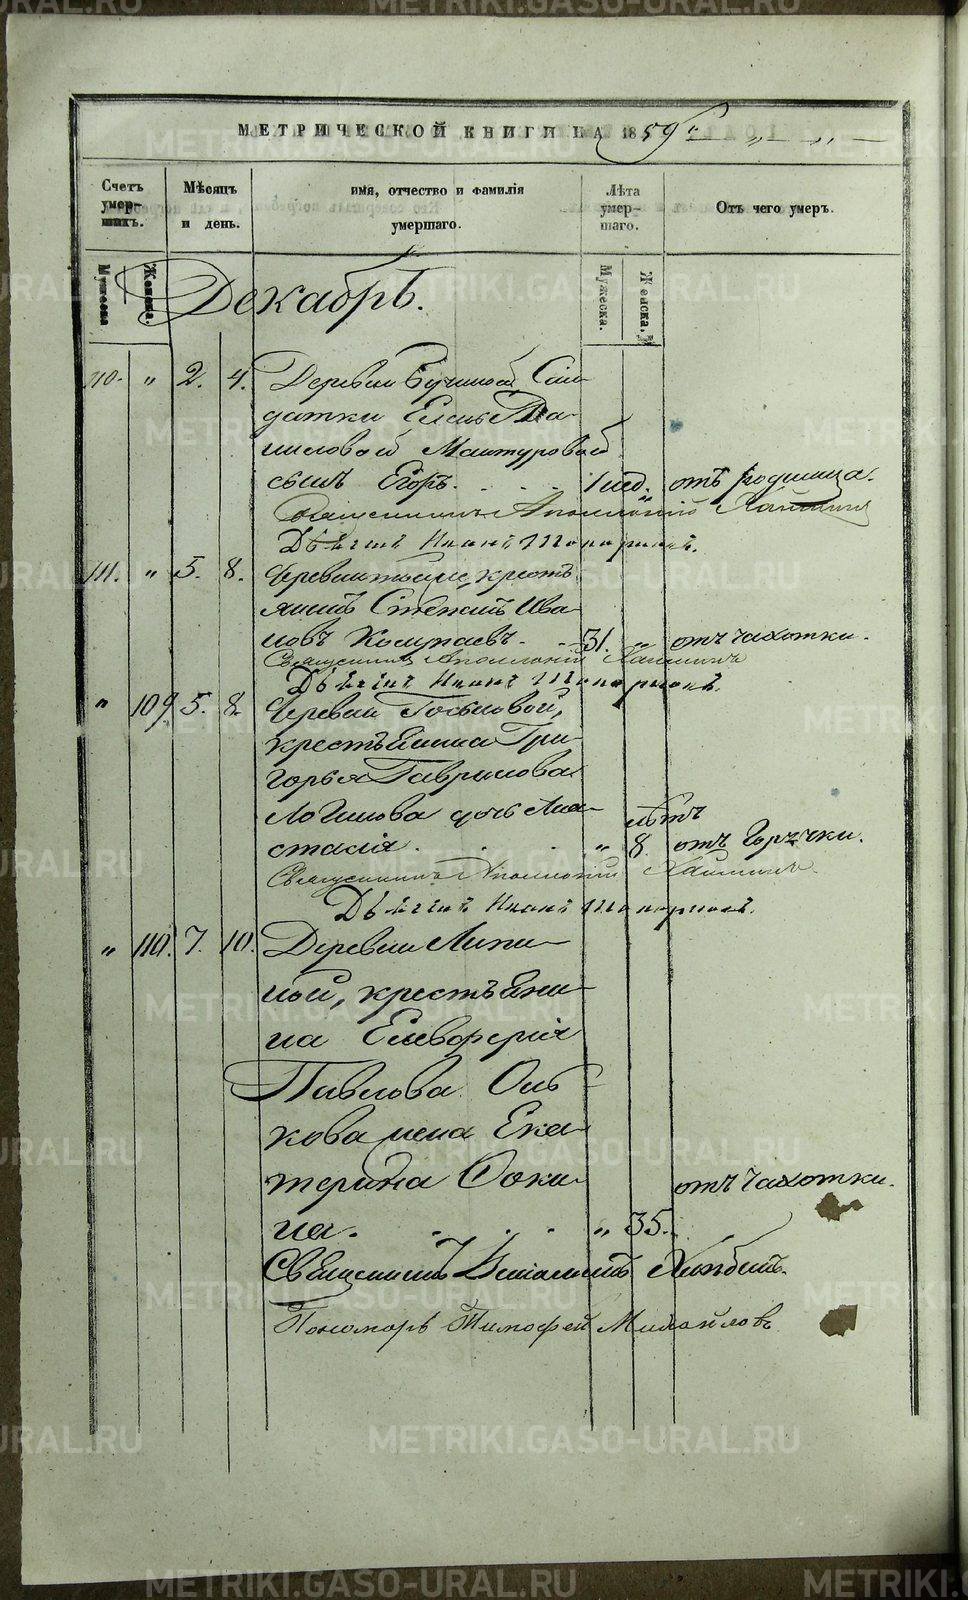 МЕТРИЧЕСКОЙ КНИГИ НА 1859 г.
Счетъ умер-шихъ.
Мѣсяцъ и день.
имя, отчество и фамилія умершаго.
Лѣта умер-шаго.
Отъ чего умеръ.
Мужеска
Женска.
Мужеска.
Женска.
Декабрь.
110. „ 2. 4. Деревни Сол-
датки Елены Да-
ниловой Мантуровой
сынъ Егоръ. 1 нед. отъ родимца.
Священникъ Аполлоній
Дьячекъ Иванъ Топорковъ.
111. „ 5. 8. Деревни тойже, кресть
янинъ Степанъ Ива
новъ 31. „ отъ чахотки.
Священникъ Аполлоній
Дьячекъ Иванъ Топорковъ.
„ 109. 5. 8. Деревни
крестьянина Гри-
горья Гаврилова
Логинова дочь Ана-
лѣтъ
стасія. „ 8. отъ горячки.
Священникъ Аполлоній
Дьячекъ Иванъ Топорковъ.
„ 110. 7. 10. Деревни Липи-
ной, крестьяни-
на Елевферія
Павлова Оль-
кова жена Ека-
терина Ѳоки-
отъ чахотки.
на. „ 35.
Священникъ
Пономарь Тимофей Михайловъ
METRIKI.GASO-URAL.RU